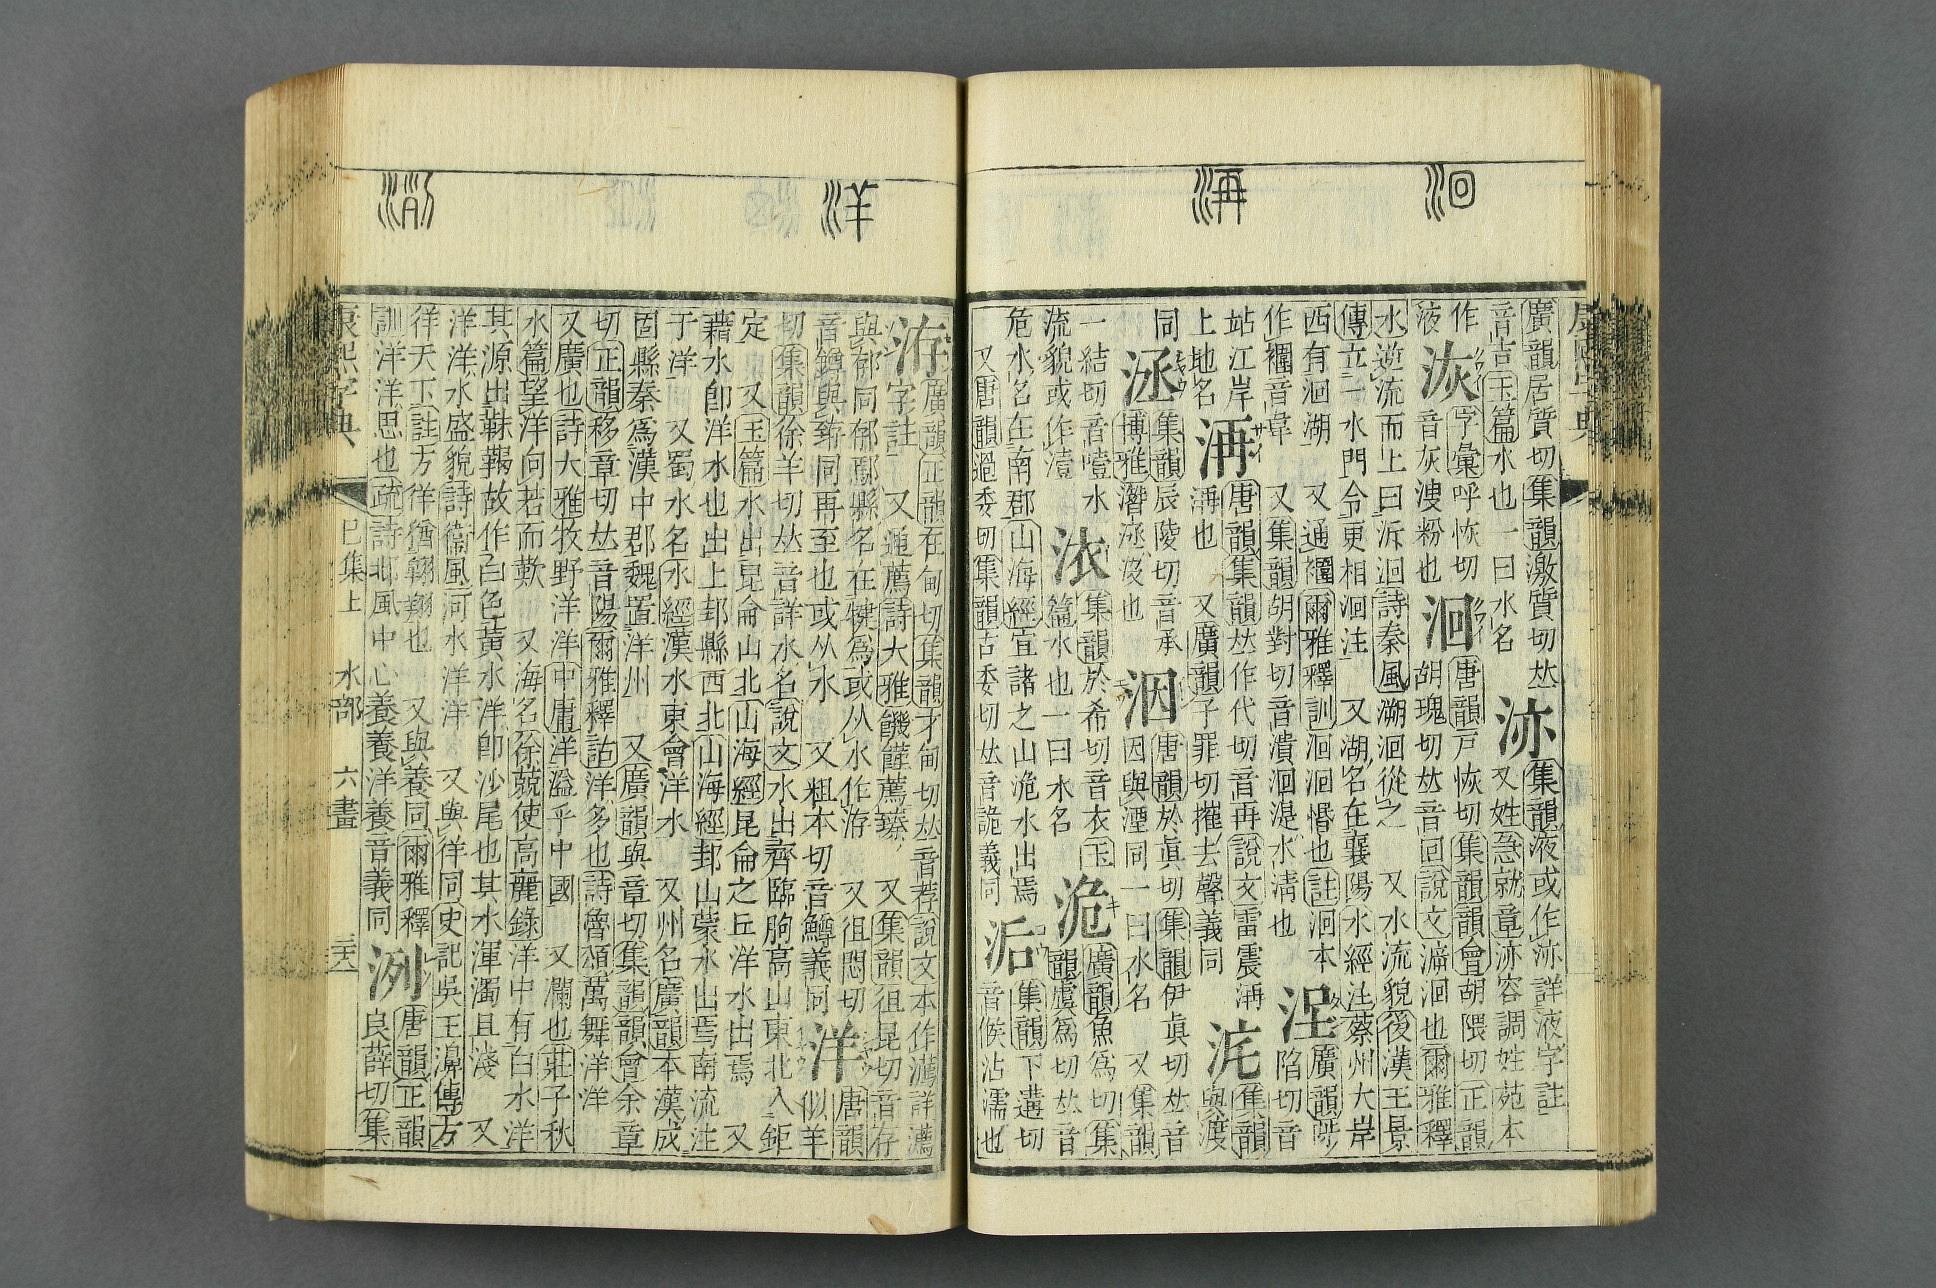 康熙字典
廣韻居質切集韻激質切𠀤
音吉玉篇水也一曰水名
洂集韻液或作洂詳液字註
又姓急就章洂容調姓苑本
作液
洃字彙呼恢切
音灰溲粉也
洄唐韻戸恢切集韻韻會胡隈切正韻
胡瑰切𠀤音回說文㴑洄也爾雅釋
水逆流而上曰泝洄詩秦風溯洄從之 又水流貌後漢王景
傳立一水門令更相洄注 又湖名在襄陽水經注蔡州大岸
西有洄湖 又通禈爾雅釋訓洄洄惛也註洄本
作禈音韋 又集韻胡對切音潰洄湜水淸也
廣韻陟
陷切音
站江岸
上地名
洅唐韻集韻𠀤作代切音再說文雷震洅
洅也 又廣韻子罪切摧去聲義同
集韻
與渡
同
洆集韻辰陵切音承
博雅濳洆沒也
洇唐韻於眞切集韻伊眞切𠀤音
因與湮同一曰水名 又集韻
一結切音噎水
流貌或作㵫
㳖集韻於希切音衣玉
篇水也一曰水名
洈廣韻魚爲切集
韻虞爲切𠀤音
危水名在南郡山海經宜諸之山洈水出焉
又唐韻過委切集韻古委切𠀤音詭義同
洉集韻下遘切
音候沾濡也
洄
洅
洊廣韻正韻在甸切集韻才甸切𠀤音荐說文本作瀳詳瀳
字註 又通薦詩大雅饑饉薦臻 又集韻徂昆切音存
與郁同郁鄢縣名在犍爲或从水作洊 又徂悶切
音鐏與臶同再至也或从水 又粗本切音鱒義同
洋唐韻
似羊
切集韻徐羊切𠀤音詳水名說文水出齊臨朐高山東北入鉅
定 又玉篇水出昆侖山北山海經昆侖之丘洋水出焉 又
藉水卽洋水也出上邽縣西北山海經邽山蒙水出焉南流注
于洋 又蜀水名水經漢水東會洋水 又州名廣韻本漢成
固縣秦爲漢中郡魏置洋州 又廣韻與章切集韻韻會余章
切正韻移章切𠀤音陽爾雅釋詁洋多也詩魯頌萬舞洋洋
又廣也詩大雅牧野洋洋中庸洋溢乎中國 又瀾也莊子秋
水篇望洋向若而歎 又海名徐兢使高麗錄洋中有白水洋
其源出靺鞨故作白色黃水洋卽沙尾也其水渾濁且淺 又
洋洋水盛貌詩衞風河水洋洋 又與徉同史記吳王濞傳方
徉天下註方徉猶翺翔也 又與養同爾雅釋
訓洋洋思也疏詩邶風中心養養洋養音義同
洌唐韻正韻
良薛切集
洋
康熙字典 巳集上 水部 六畫